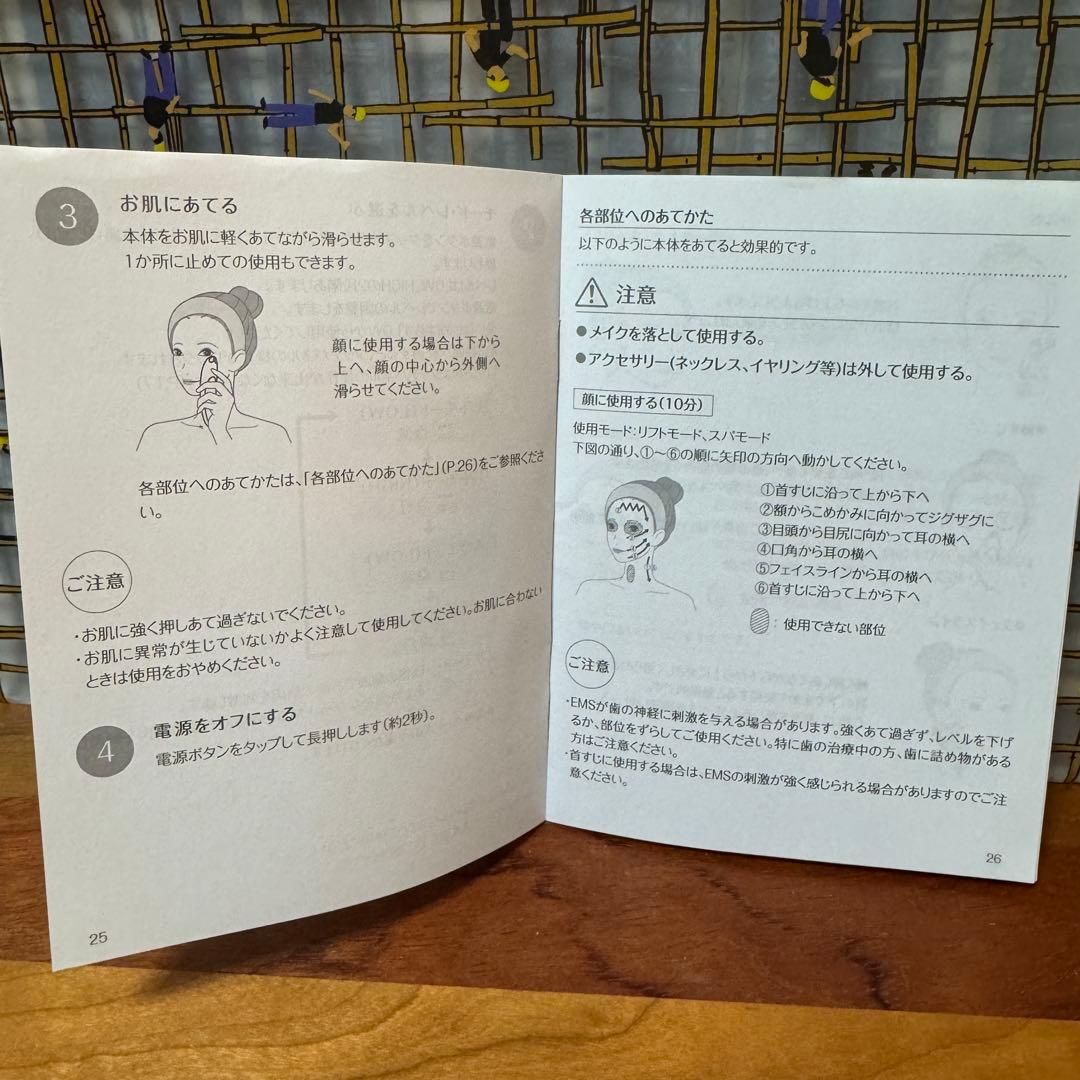 3
お肌にあてる
本体をお肌に軽くあてながら滑らせます。
1か所に止めての使用もできます。
顔に使用する場合は下から
上へ、顔の中心から外側へ
滑らせてください。
各部位へのあてかたは、「各部位へのあてかた」(P.26)をご参照くださ
い。
ご注意
・お肌に強く押しあて過ぎないでください。
・お肌に異常が生じていないかよく注意して使用してください。お肌に合わない
ときは使用をおやめください。
4
電源をオフにする
電源ボタンをタップして長押しします(約2秒)。
25
各部位へのあてかた
以下のように本体をあてると効果的です。
注意
●メイクを落として使用する。
●アクセサリー(ネックレス、イヤリング等)は外して使用する。
顔に使用する(10分)
使用モード:リフトモード、スパモード
下図の通り、①～⑥の順に矢印の方向へ動かしてください。
①首すじに沿って上から下へ
②額からこめかみに向かってジグザグに
③目頭から目尻に向かって耳の横へ
④口角から耳の横へ
⑤フェイスラインから耳の横へ
⑥首すじに沿って上から下へ
：使用できない部位
ご注意
・EMSが歯の神経に刺激を与える場合があります。強くあて過ぎず、レベルを下げ
るか、部位をずらしてご使用ください。特に歯の治療中の方、歯に詰め物がある
方はご注意ください。
・首すじに使用する場合は、EMSの刺激が強く感じられる場合がありますのでご注
意ください。
26